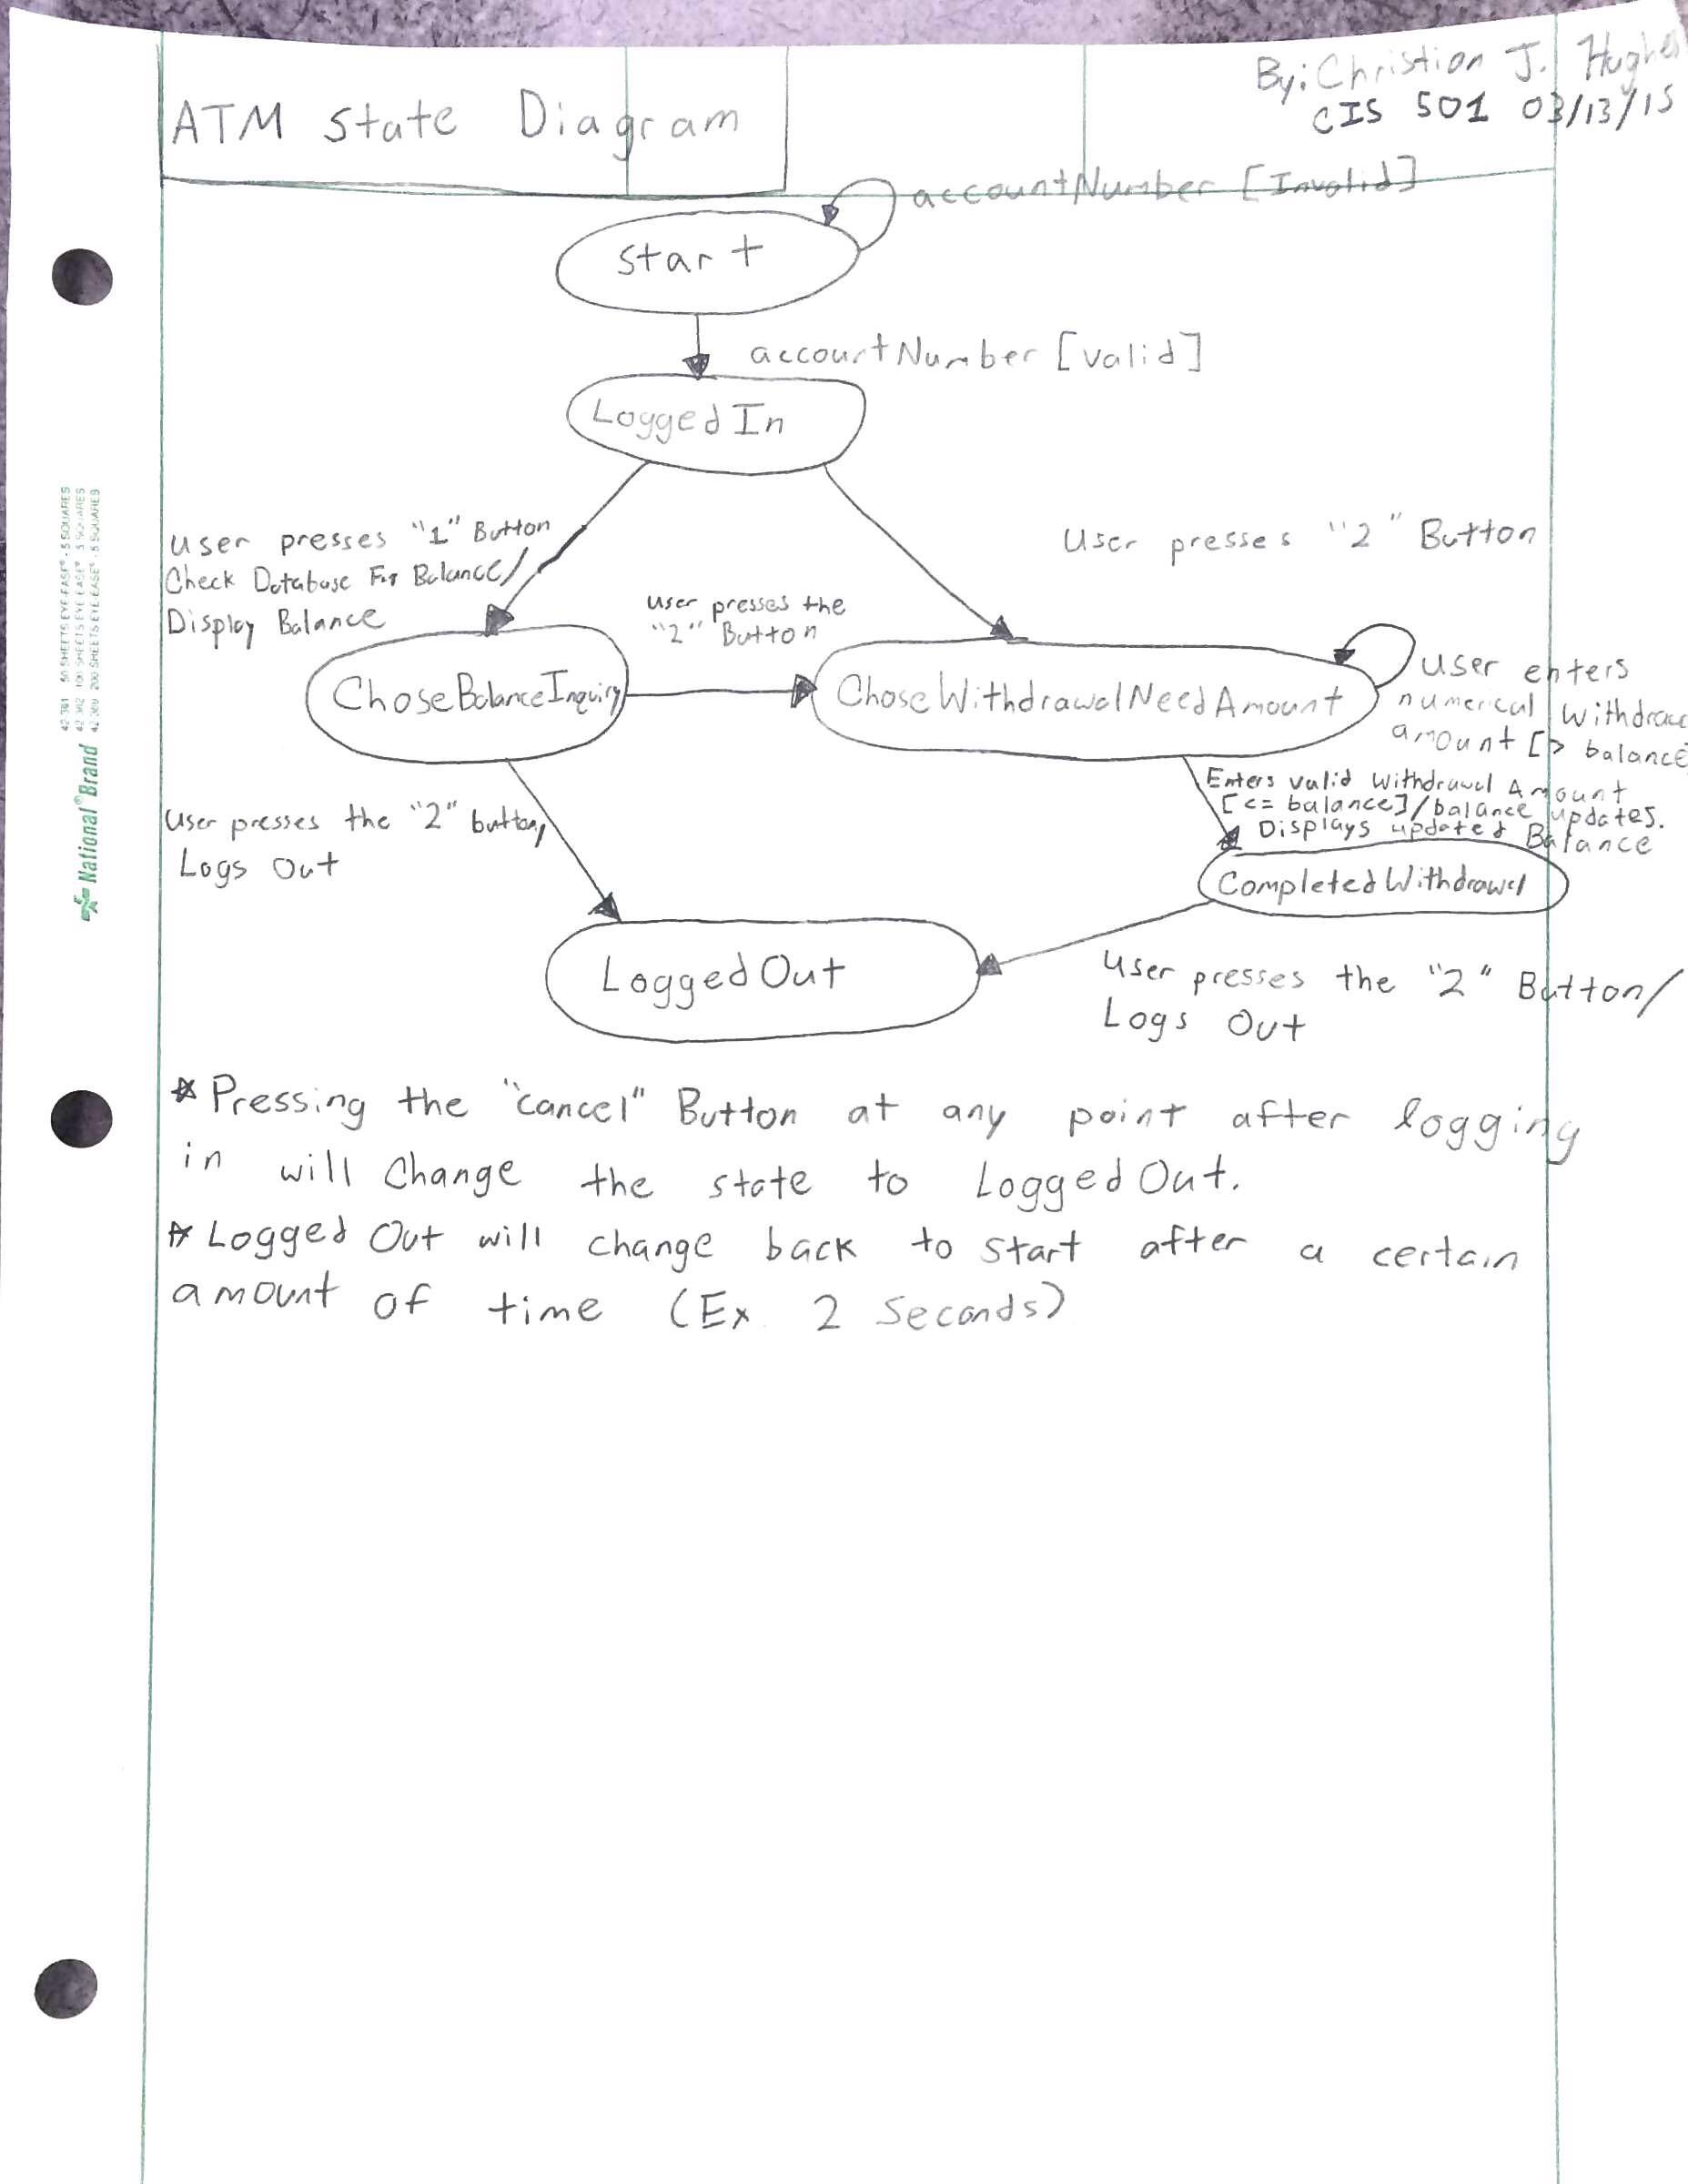 By: Christion J. Hughes
CIS 501 03/13/15
ATM State Diagram
accountNumber [Invalid]
Start
accountNumber [valid]
LoggedIn
User presses "1" Button
Check Database For Balance/
Display Balance
User presses "2" Button
User presses the
"2" Button
ChoseBalanceInquiry
ChoseWithdrawalNeedAmount
User enters
numerical withdraw
amount [> balance]
Enters valid withdrawal Amount
[<= balance]/balance updates.
Displays updated Balance
User presses the "2" button,
Logs Out
CompletedWithdrawal
LoggedOut
User presses the "2" Button/
Logs Out
*Pressing the "cancel" Button at any point after logging
in will change the state to LoggedOut.
*Logged Out will change back to start after a certain
amount of time (Ex 2 Seconds)
42-381 50 SHEETS EYE-EASE® - 5 SQUARES
42-382 100 SHEETS EYE-EASE® - 5 SQUARES
42-389 200 SHEETS EYE-EASE® - 5 SQUARES
National®Brand